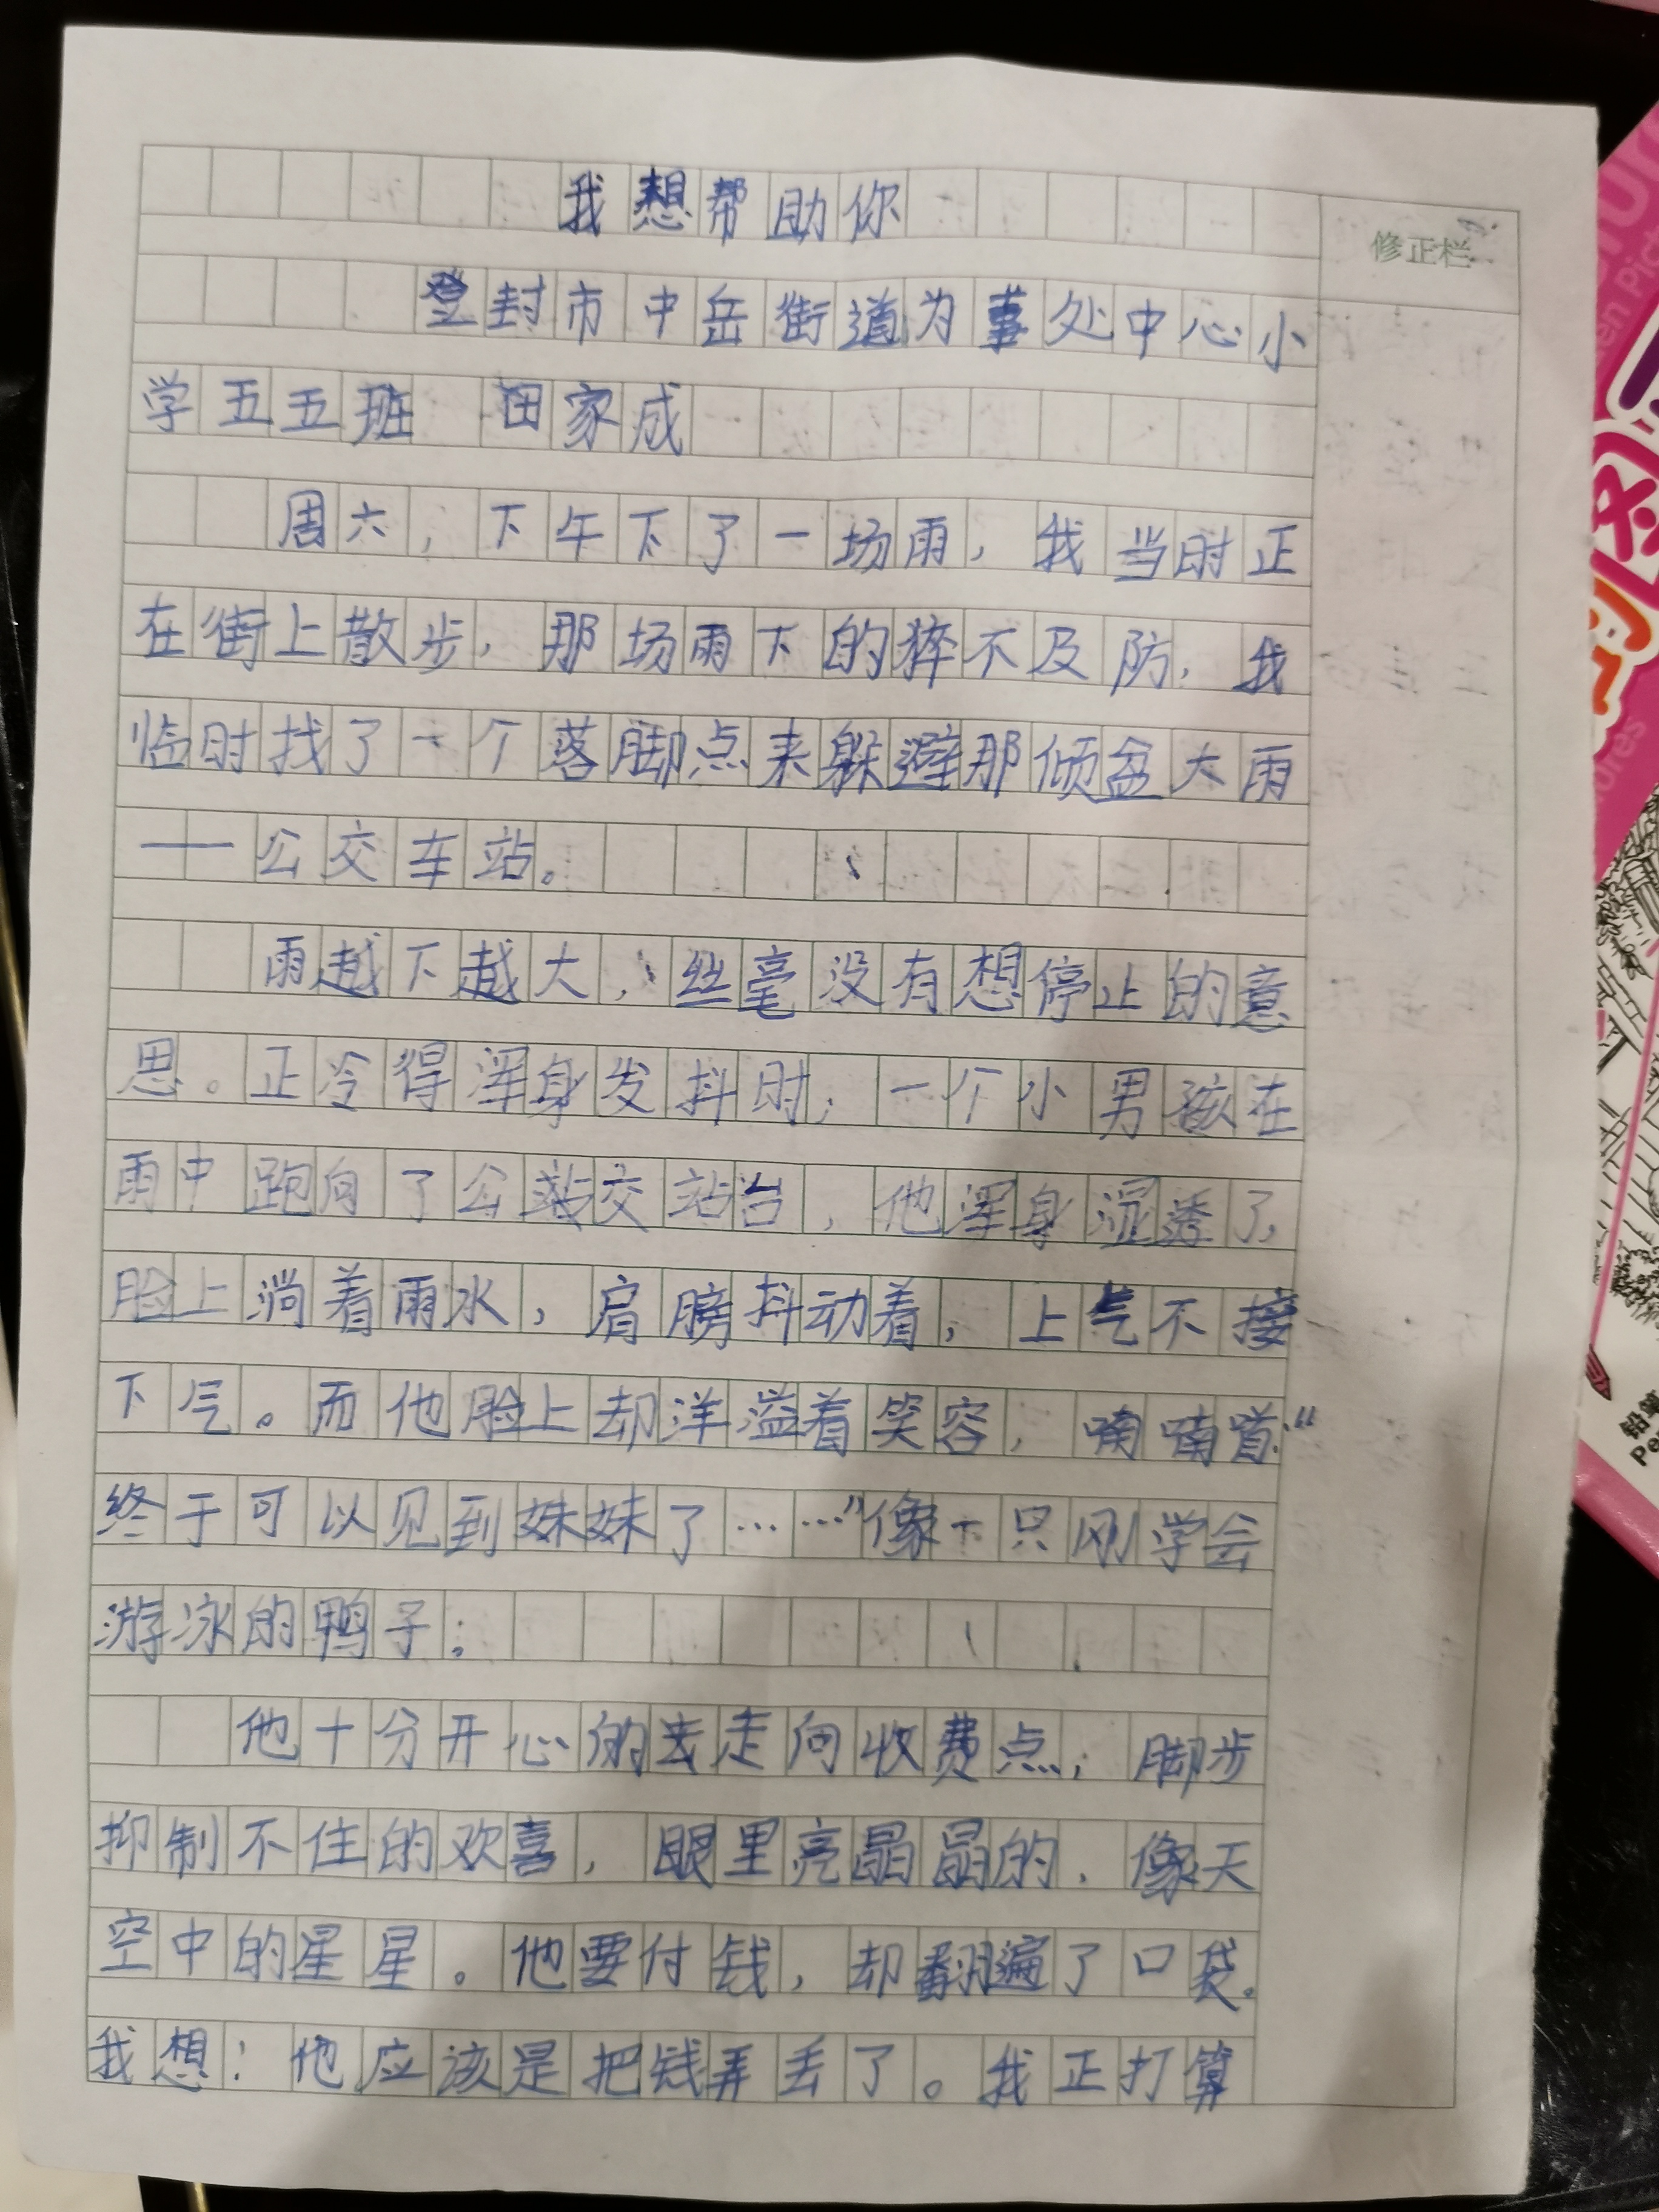 我想帮助你
修正栏
登封市中岳街道为事处中心小
学五五班 田家成
周六，下午下了一场雨，我当时正
在街上散步，那场雨下的猝不及防，我
临时找了一个落脚点来躲避那倾盆大雨
——公交车站。
雨越下越大，丝毫没有想停止的意
思。正冷得浑身发抖时，一个小男孩在
雨中跑向了公交站台，他浑身湿透了，
脸上淌着雨水，肩膀抖动着，上气不接
下气。而他脸上却洋溢着笑容，喃喃道:“
终于可以见到妹妹了……”像一只刚学会
游泳的鸭子；
他十分开心的去走向收费点，脚步
抑制不住的欢喜，眼里亮晶晶的，像天
空中的星星。他要付钱，却翻遍了口袋。
我想：他应该是把钱弄丢了。我正打算
ures
铅笔